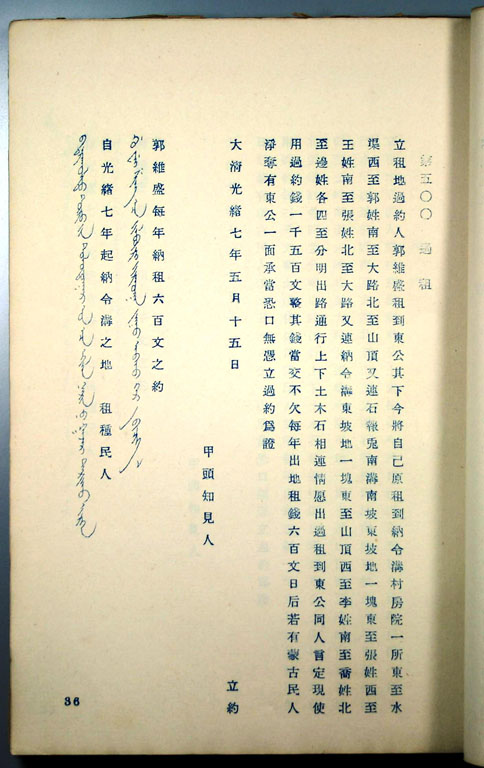 第五〇〇 過租
立租地過約人郭維盛租到東公其下今將自己原租到納令溝村房院一所東至水
渠西至郭姓南至大路北至山頂又連石報兎南溝南坡東坡地一塊東至張姓西至
王姓南至張姓北至大路又連納令溝東坡地一塊東至山頂西至李姓南至喬姓北
至邊姓各四至分明出路通行上下土木石相連情愿出過租到東公同人言定現使
用過約錢一千五百文整其錢當交不欠每年出地租錢六百文日后若有蒙古民人
淨奪有東公一面承當恐口無憑立過約爲證
大淸光緖七年五月十五日 立約
甲頭知見人
郭維盛每年納租六百文之約
自光緖七年起納令溝之地 租種民人
36